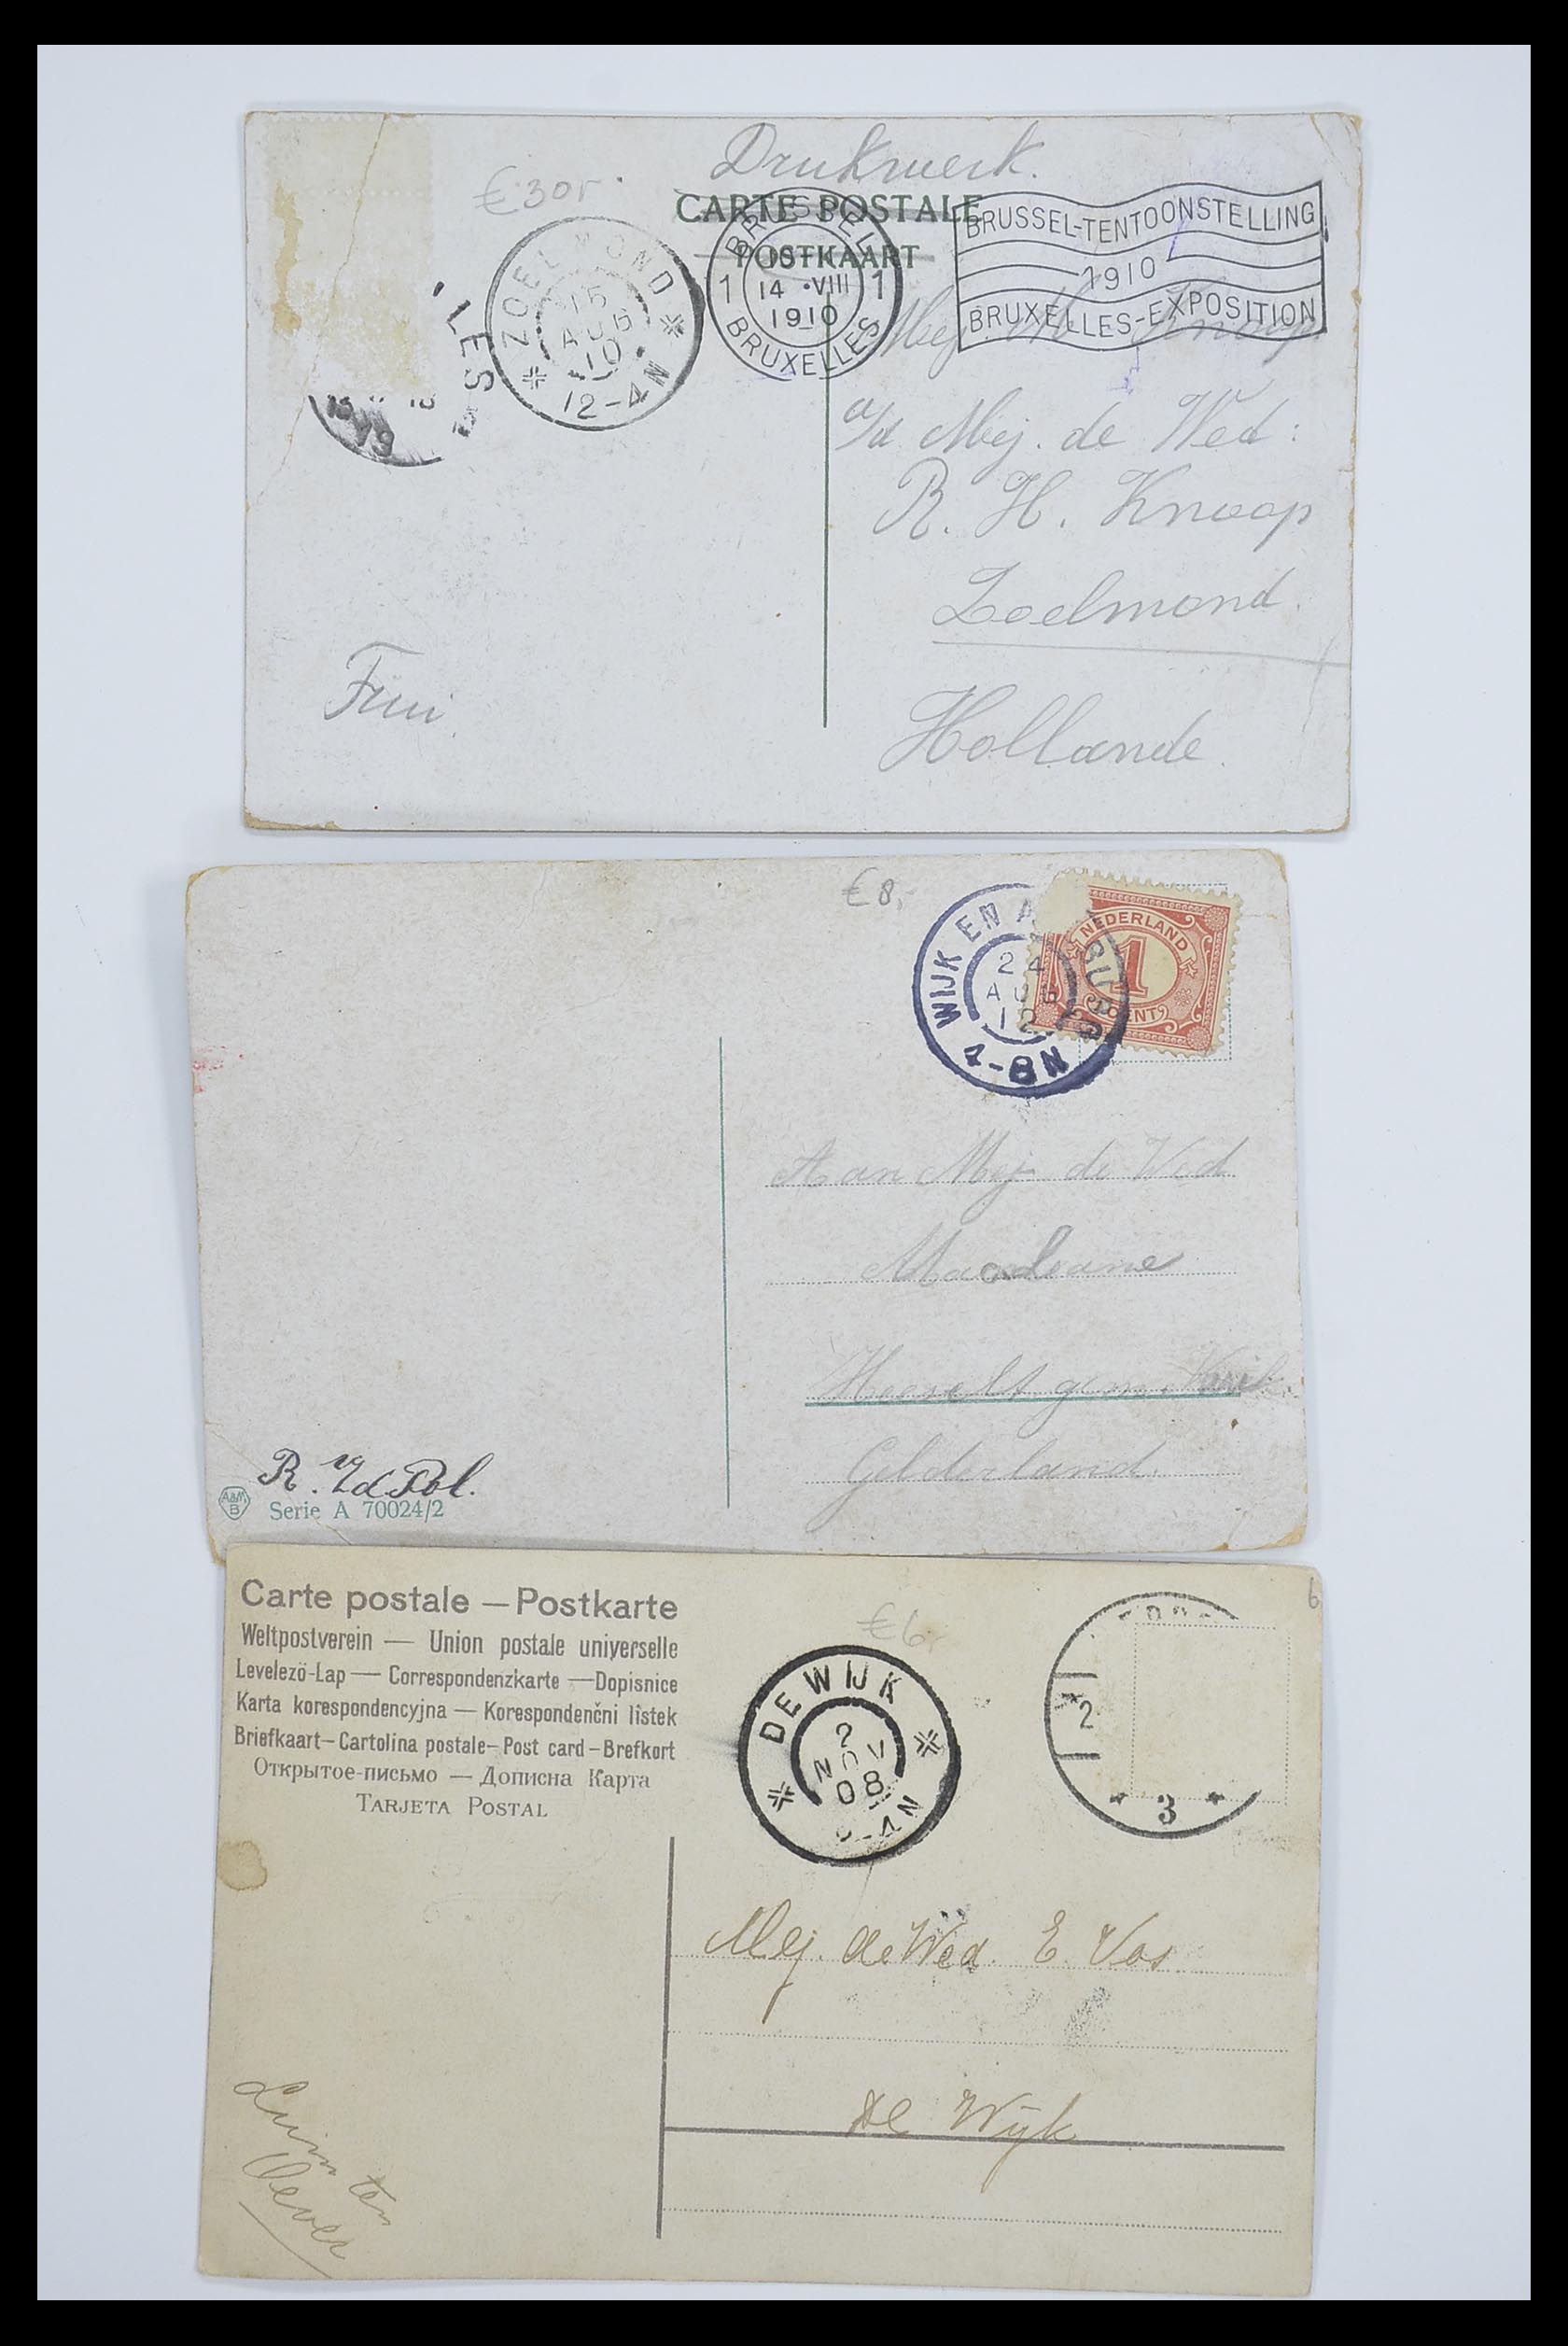 Drukwerk.
€ 30,-
CARTE POSTALE
POSTKAART
ZOELMOND
15
AUG
10
12-4N
BRUSSEL
1 14 •VIII 1
1910
BRUXELLES
BRUSSEL-TENTOONSTELLING
1910
BRUXELLES-EXPOSITION
LES
Mej. Knoop
a/d Mej. de Wed:
R. H. Knoop
Zoelmond.
Hollande.
€ 8,-
WIJK EN A BURG
24
AUG
12
4-8N
NEDERLAND
1
CENT
Aan Mej de Wed
Gelderland.
R. v/d Pol.
A&M
B
Serie A 70024/2
Carte postale — Postkarte
Weltpostverein — Union postale universelle
Levelező-Lap — Correspondenzkarte — Dopisnice
Karta korespondencyjna — Korespondenčni listek
Briefkaart – Cartolina postale – Post card – Brefkort
Открытое-письмо — Дописна Карта
TARJETA POSTAL
€ 6,-
6
DE WIJK
2
NOV
08
-4N
2
3
Mej. de Wed. E. Vos.
de Wijk